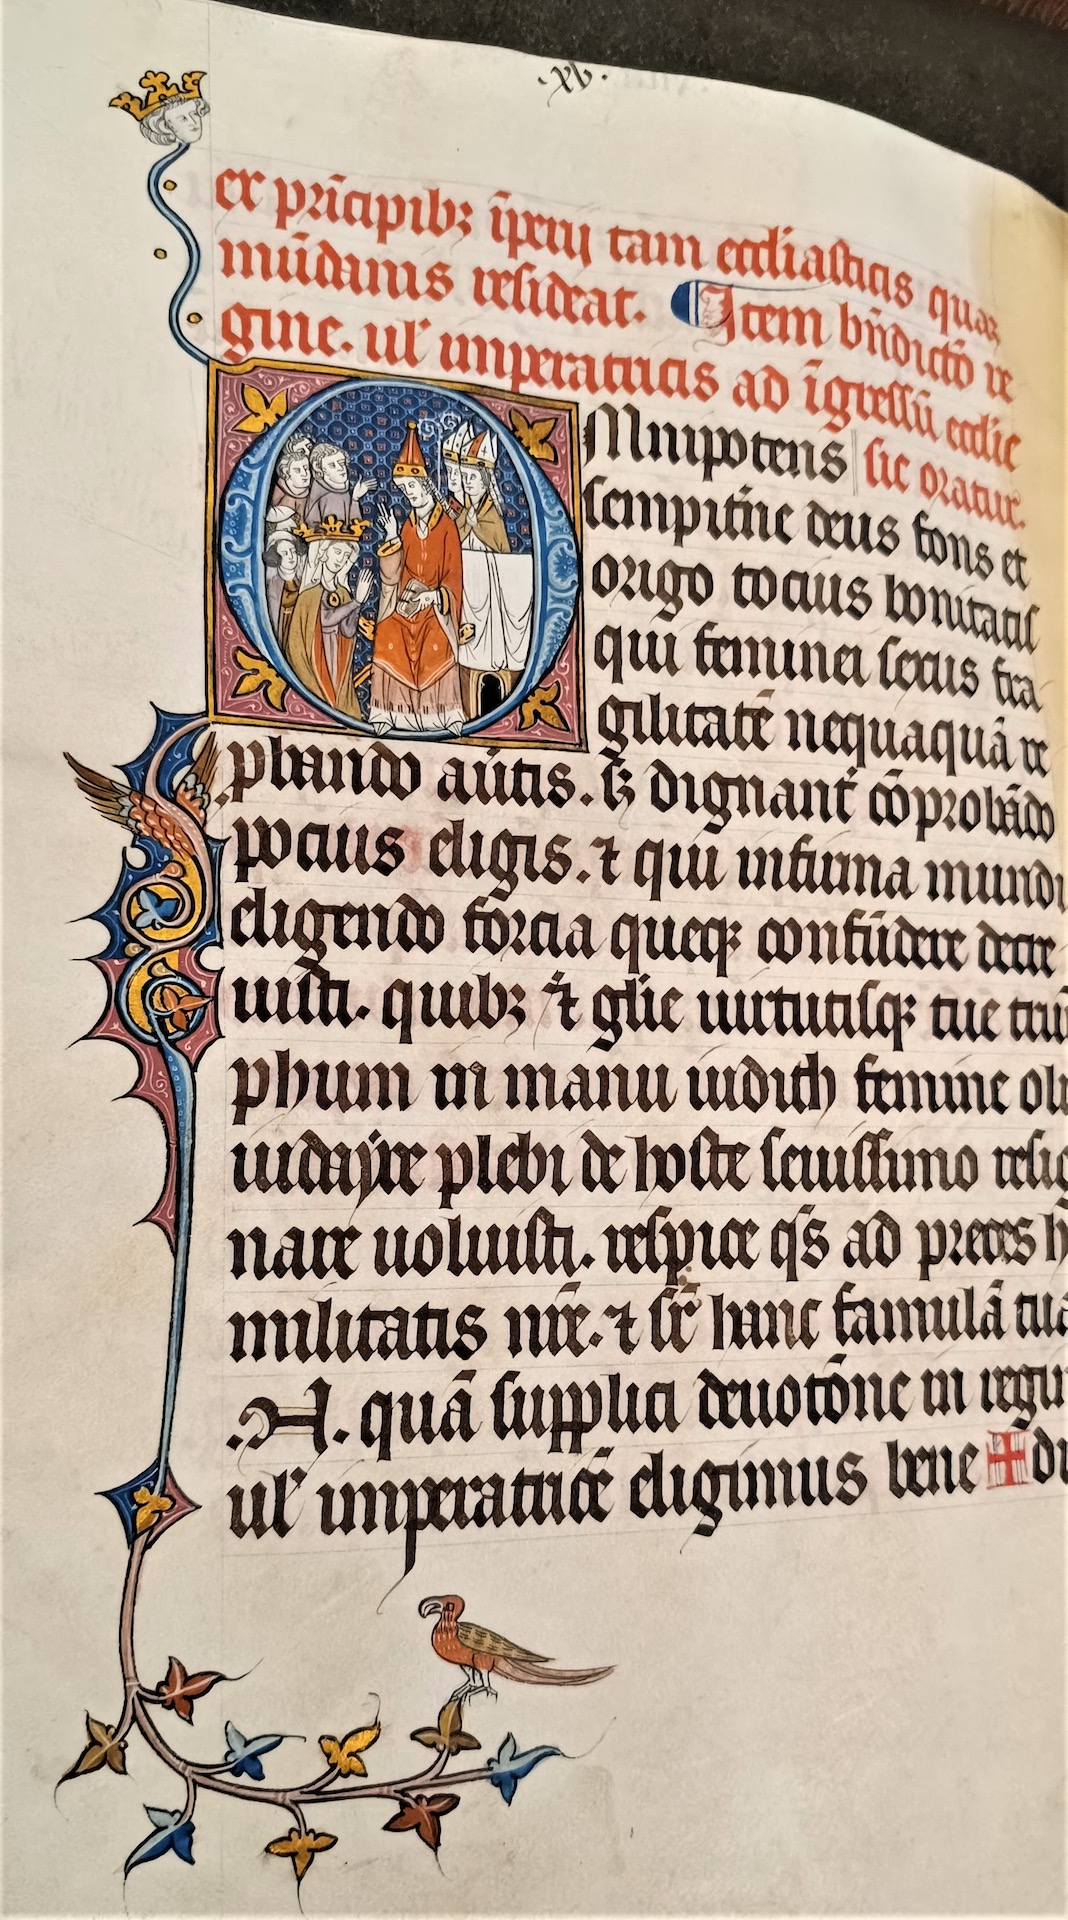 ·xv·
ex pͥncipibꝫ ı̄perij tam eccl̄iasticis quaꝫ
mūdanis resideat. Item bn̄dictō re
gine. ul' imperatricis ad ı̄gressū eccl̄ie
Omnipotens sic oratur.
sempit̄ne deus fons et
origo tocius bonitatis
qui feminei sexus fra
gilitatē nequaquā re
phando aūtis. sꝫ dignant̄ cōprobādo
pocius eligis. ⁊ qui infirma mundi
eligendo forcia queqꝫ confūdere decre
uisti. quibꝫ ⁊ gl̄ie uirtutisqꝫ tue triū
phum in manu iudith femine oli
iudayce plebi de hoste seuissimo resig
nare uoluisti. respice qs̄ ad preces h
militatis nr̄e. ⁊ sr̄ hanc famulā tua
.A. quā supplici deuotōne in regin
ul' imperatricē eligimus bene ✠ di